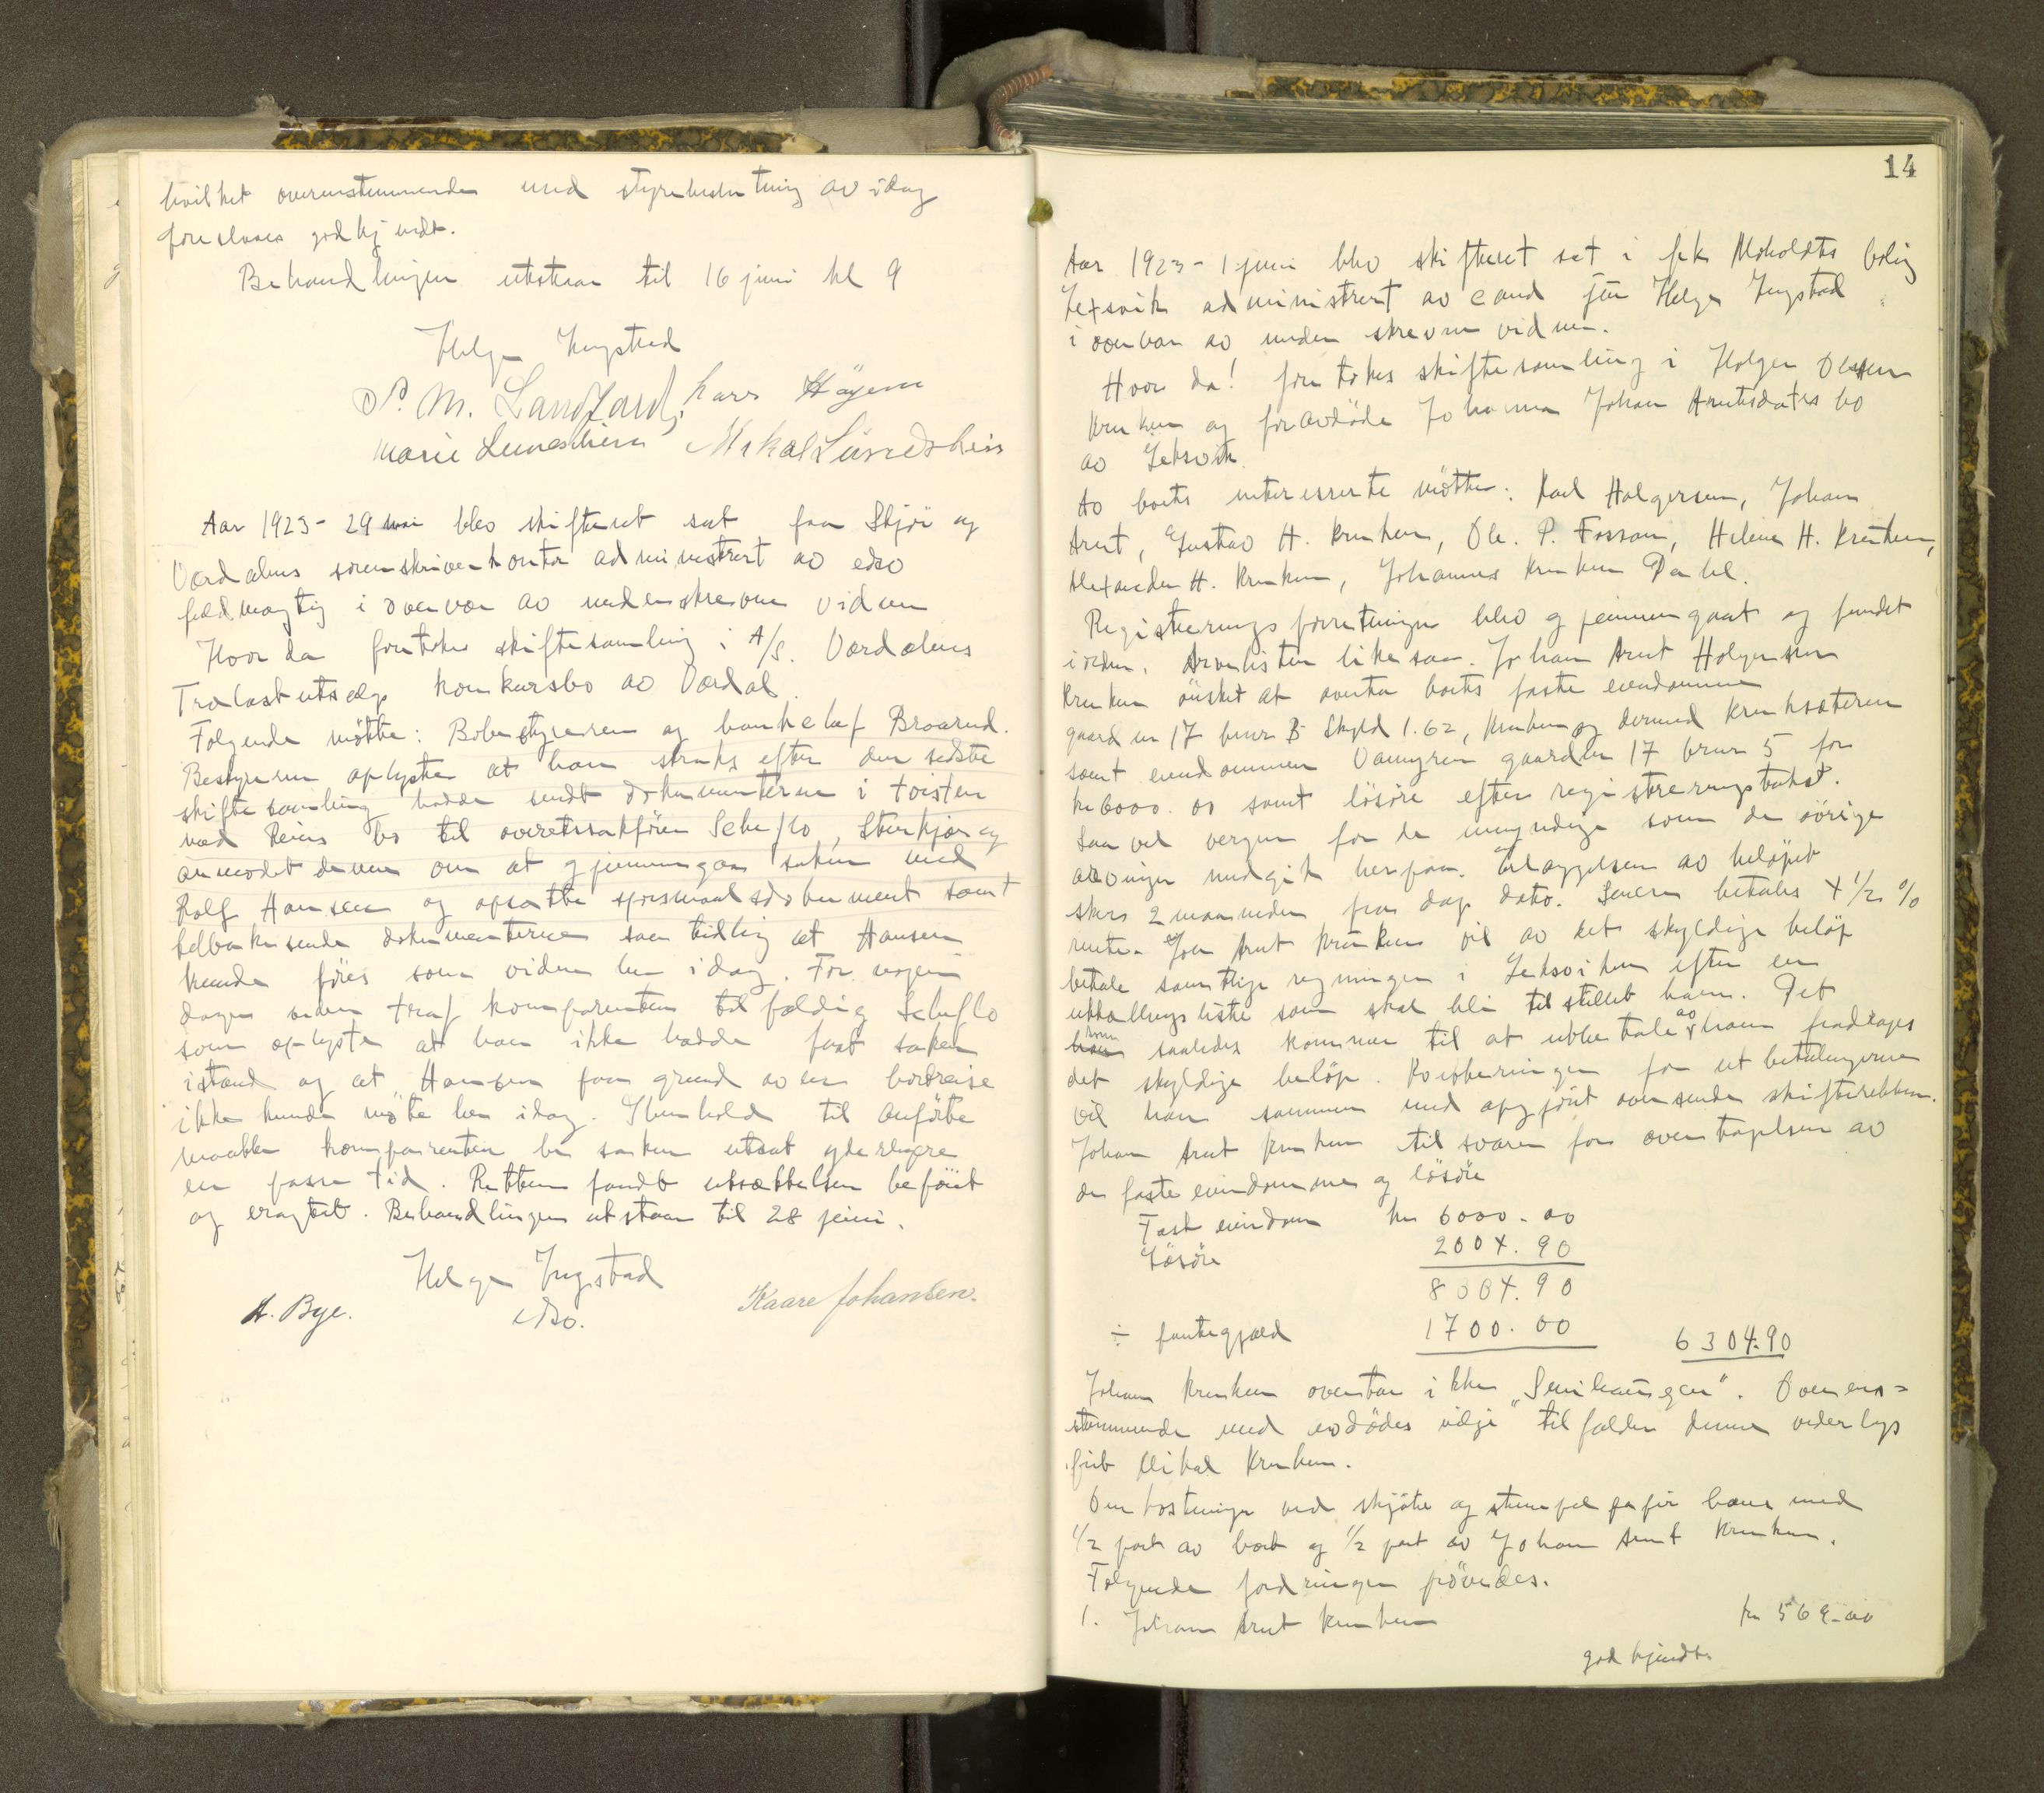 hvilket overenstemmende med styrebeslutning av idag
foreslaaes godkjendt.
Behandlingen utstaar til 16 juni kl 9
Helge Ingstad
P. M. Landfald, Lars Høyem
Marie Lunedshein Mikal Lunedshein
Aar 1923 - 29 mai blev skifteret sat paa Stjør og
Værdalens sorenskriverkontor administrert av edsv
fuldmægtig i overvær av underskrevne vidner
Hvor da foretokes skiftesamling i A/S. Værdalens
Trælastutsalgs konkursbo av Værdal.
Følgende møtte: Bobestyreren og bankchef Broarud.
Bestyreren oplyste at han straks efter den sidste
skiftesamling hadde sendt dokumenterne i tvisten
med Reins bo til overetssakfører Scheflo, Stenkjær og
anmodet denne om at gjennemgaa saken med
Rolf Hansen og opsætte spørsmaalsdokument samt
tilbakesende dokumenterne saa tidlig at Hansen
kunde føres som vidne her idag. For nogen
dager siden traf komparenten tilfældig Scheflo
som oplyste at han ikke hadde faat saken
istand og at Hansen paa grund av en bortreise
ikke kunde møte her idag. I henhold til anførte
maatte komparenten be saken utsat yderligere
en passe tid. Retten fandt utsættelsen beføiet
og eragtet. Behandlingen utstaar til 28 juni.
Helge Ingstad
A. Bye. edsv. Kaare Johansen.
14
Aar 1923 - 1 juni blev skifteret sat i frk Moholdts bolig
Lexvik administrert av cand jur Helge Ingstad
i overvær av underskrevne vidner.
Hvor da! foretokes skiftesamling i Holger Olsen
Kruken og foravdøde Johanna Johan Arntsdatters bo
av Leksvik.
Av boets interesserte møtte: Karl Holgersen, Johan
Arnt, Gustav H. Kruken, Ole. P. Fossan, Helene H. Kruken,
Alexander H. Kruken, Johannes Kruken Dahl.
Registreringsforretningen blev gjennemgaat og fundet
iorden. Arvelisten likesaa. Johan Arnt Holgersen
Kruken ønsket at overta boets faste eiendomme
gaard nr 17 bruk 3 Skyld 1.62, Kruken og dermed Kruksæteren
samt eiendommen Vamyren gaard nr 17 bruk 5 for
kr 6000.00 samt løsøre efter registreringstakst.
Saavel vergen for de umyndige som de øvrige
arvinger medgik herpaa. Erlæggelsen av beløpet
skers 2 maaneder fra dags dato. Senere betales 4 1/2 %
rente. Johan Arnt Kruken vil av det skyldige beløp
betale samtlige regninger i Leksviken efter en
utkallingsliste som skal bli tilstillet ham. Det
som saaledes kommer til at utbetale av ham fradrages
det skyldige beløp. Kvitteringer for utbetalingerne
vil han sammen med opgjøret oversende skifteretten.
Johan Arnt Kruken tilsvarer for overtagelsen av
de faste eiendomme og løsøre
Fast eiendom kr 6000.00
Løsøre 2004.90
8004.90
÷ pantegjæld 1700.00 6304.90
Johan Kruken overtar ikke „Seiihaugen“. Overens=
stemmende med avdødes vilje tilfalder denne vederlags
frit Mikal Kruken.
Omkostninger ved skjøte og stempelpapir bæres med
1/2 part av boet og 1/2 part av Johan Arnt Kruken.
Følgende fordringer prøvedes.
1. Johan Arnt Kruken kr 569.00
godkjendt